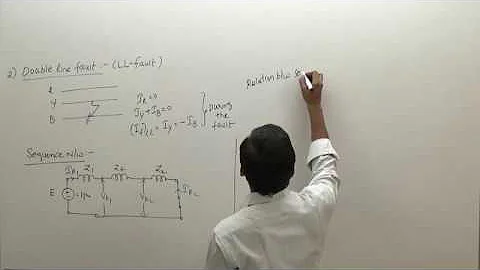 2) Double line fault :- (LL-fault)
R
Y
B
I_R = 0
I_Y + I_B = 0
(I_f)_LL = I_Y = -I_B
During
the
fault
Sequence N/w :-
I_R1 Z_1 Z_2
E
Relation b/w